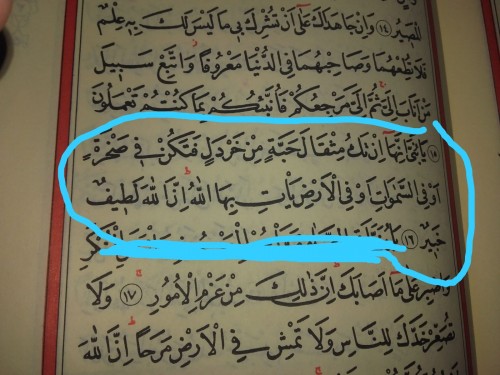 لَلْمَصٖيرُ ﴿١٤﴾ وَاِنْ جَاهَدَاكَ عَلٰٓى اَنْ تُشْرِكَ بٖى مَا لَيْسَ لَكَ بِهٖ عِلْمٌ
فَلَا تُطِعْهُمَا وَصَاحِبْهُمَا فِى الدُّنْيَا مَعْرُوفًا وَاتَّبِعْ سَبٖيلَ
مَنْ اَنَابَ اِلَىَّ ثُمَّ اِلَىَّ مَرْجِعُكُمْ فَاُنَبِّئُكُمْ بِمَا كُنْتُمْ تَعْمَلُونَ
﴿١٥﴾ يَا بُنَىَّ اِنَّهَٓا اِنْ تَكُ مِثْقَالَ حَبَّةٍ مِنْ خَرْدَلٍ فَتَكُنْ فٖى صَخْرَةٍ
اَوْ فِى السَّمٰوَاتِ اَوْ فِى الْاَرْضِ يَاْتِ بِهَا اللّٰهُ اِنَّ اللّٰهَ لَطٖيفٌ
خَبٖيرٌ ﴿١٦﴾
وَاصْبِرْ عَلٰى مَٓا اَصَابَكَ اِنَّ ذٰلِكَ مِنْ عَزْمِ الْاُمُورِ ﴿١٧﴾ وَلَا
تُصَعِّرْ خَدَّكَ لِلنَّاسِ وَلَا تَمْشِ فِى الْاَرْضِ مَرَحًا اِنَّ اللّٰهَ